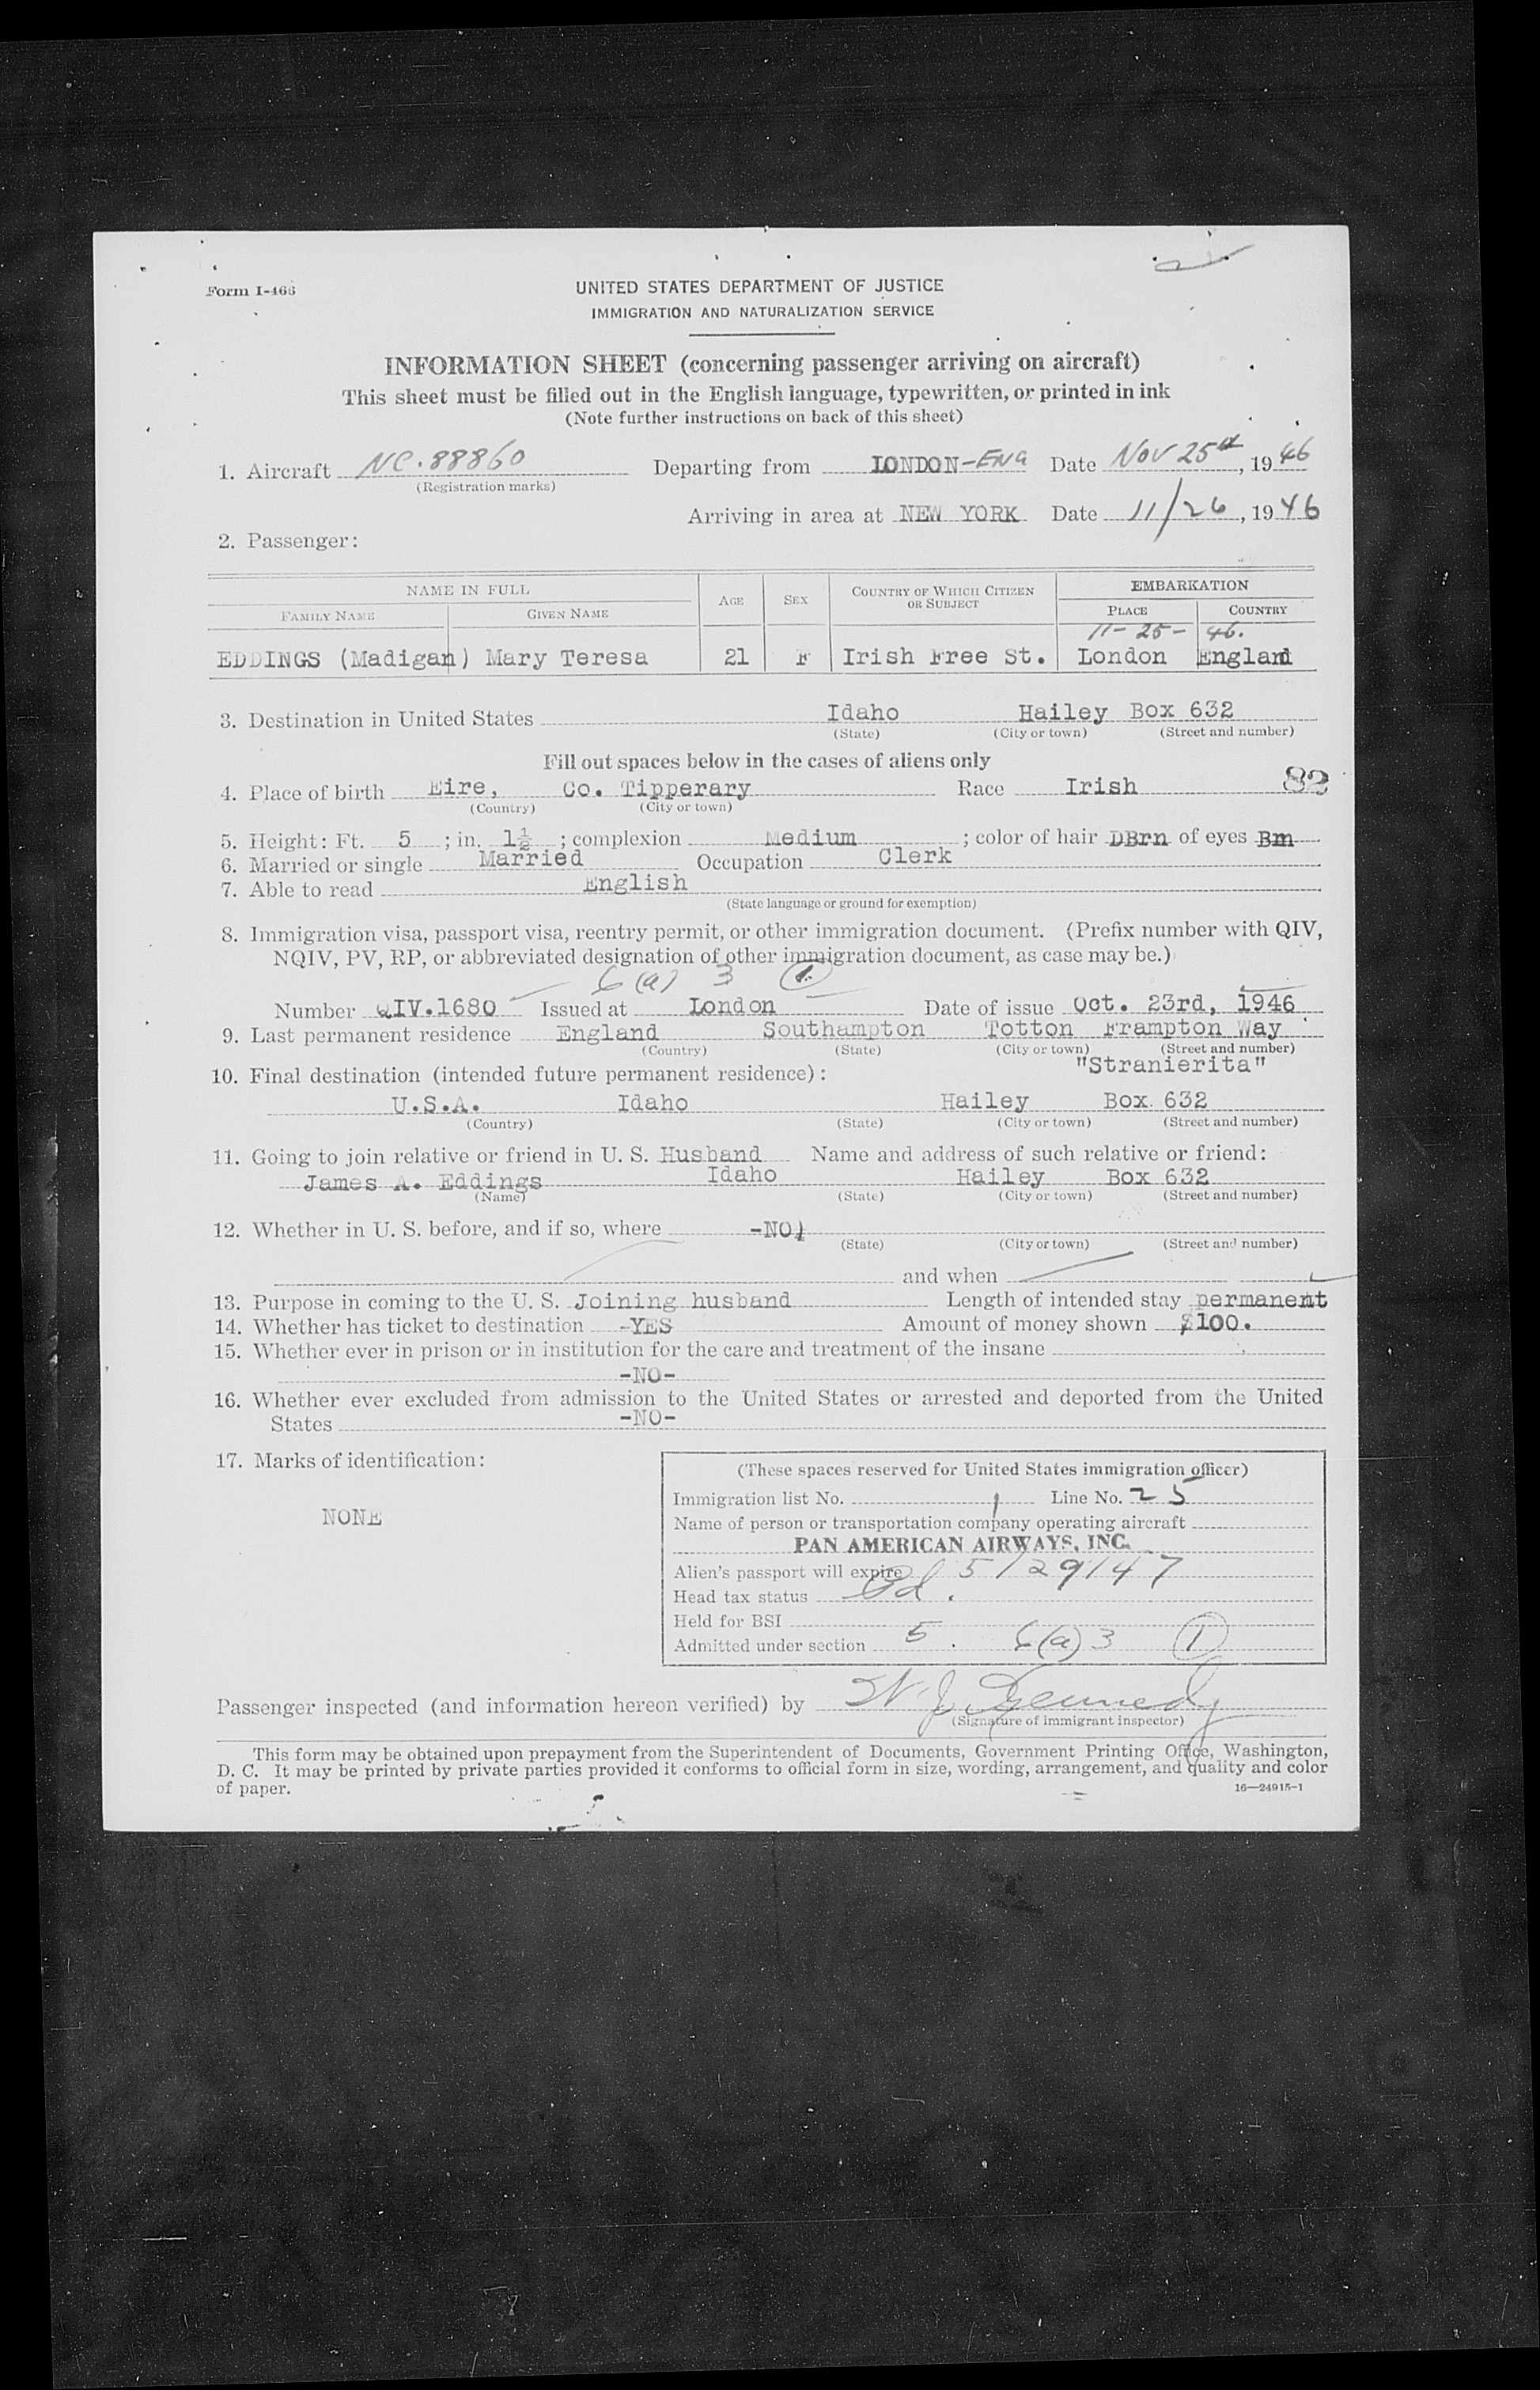 Form I-466
UNITED STATES DEPARTMENT OF JUSTICE
IMMIGRATION AND NATURALIZATION SERVICE
INFORMATION SHEET (concerning passenger arriving on aircraft)
This sheet must be filled out in the English language, typewritten, or printed in ink
(Note further instructions on back of this sheet)
1. Aircraft NC.88860 Departing from LONDON-ENG Date NOV 25th, 1946
(Registration marks)
Arriving in area at NEW YORK Date 11/26, 1946
2. Passenger:
NAME IN FULL AGE SEX COUNTRY OF WHICH CITIZEN OR SUBJECT EMBARKATION
FAMILY NAME GIVEN NAME PLACE COUNTRY
11-25-46.
EDDINGS (Madigan) Mary Teresa 21 F Irish Free St. London England
3. Destination in United States Idaho Hailey Box 632
(State) (City or town) (Street and number)
Fill out spaces below in the cases of aliens only
4. Place of birth Eire, Co. Tipperary Race Irish 82
(Country) (City or town)
5. Height: Ft. 5 ; in. 1½ ; complexion Medium ; color of hair DBrn of eyes Brn
6. Married or single Married Occupation Clerk
7. Able to read English
(State language or ground for exemption)
8. Immigration visa, passport visa, reentry permit, or other immigration document. (Prefix number with QIV,
NQIV, PV, RP, or abbreviated designation of other immigration document, as case may be.)
6(a) 3 1
Number QIV.1680 Issued at London Date of issue Oct. 23rd, 1946
9. Last permanent residence England Southampton Totton Frampton Way
(Country) (State) (City or town) (Street and number)
10. Final destination (intended future permanent residence): "Stranierita"
U.S.A. Idaho Hailey Box 632
(Country) (State) (City or town) (Street and number)
11. Going to join relative or friend in U. S. Husband Name and address of such relative or friend:
James A. Eddings Idaho Hailey Box 632
(Name) (State) (City or town) (Street and number)
12. Whether in U. S. before, and if so, where -NO-
(State) (City or town) (Street and number)
and when
13. Purpose in coming to the U. S. Joining husband Length of intended stay permanent
14. Whether has ticket to destination -YES Amount of money shown $100.
15. Whether ever in prison or in institution for the care and treatment of the insane
-NO-
16. Whether ever excluded from admission to the United States or arrested and deported from the United
States -NO-
17. Marks of identification:
NONE
(These spaces reserved for United States immigration officer)
Immigration list No. 1 Line No. 25
Name of person or transportation company operating aircraft
PAN AMERICAN AIRWAYS, INC.
Alien's passport will expire 5/29/47
Head tax status Pd.
Held for BSI
Admitted under section 5. 6(a)3 1
Passenger inspected (and information hereon verified) by W. J. Kennedy
(Signature of immigrant inspector)
This form may be obtained upon prepayment from the Superintendent of Documents, Government Printing Office, Washington,
D. C. It may be printed by private parties provided it conforms to official form in size, wording, arrangement, and quality and color
of paper. 16—24915-1